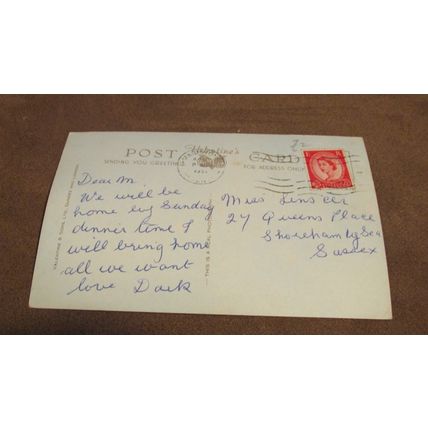 POST CARD
Valentine's
SENDING YOU GREETINGS
FOR ADDRESS ONLY
Dear M.
We will be
home by Sunday
dinner time I
will bring home
all we want
love
Miss
27 Queens Place
Shoreham by Sea
Sussex
VALENTINE & SONS, LTD., DUNDEE AND LONDON
THIS IS A REAL PHOTO